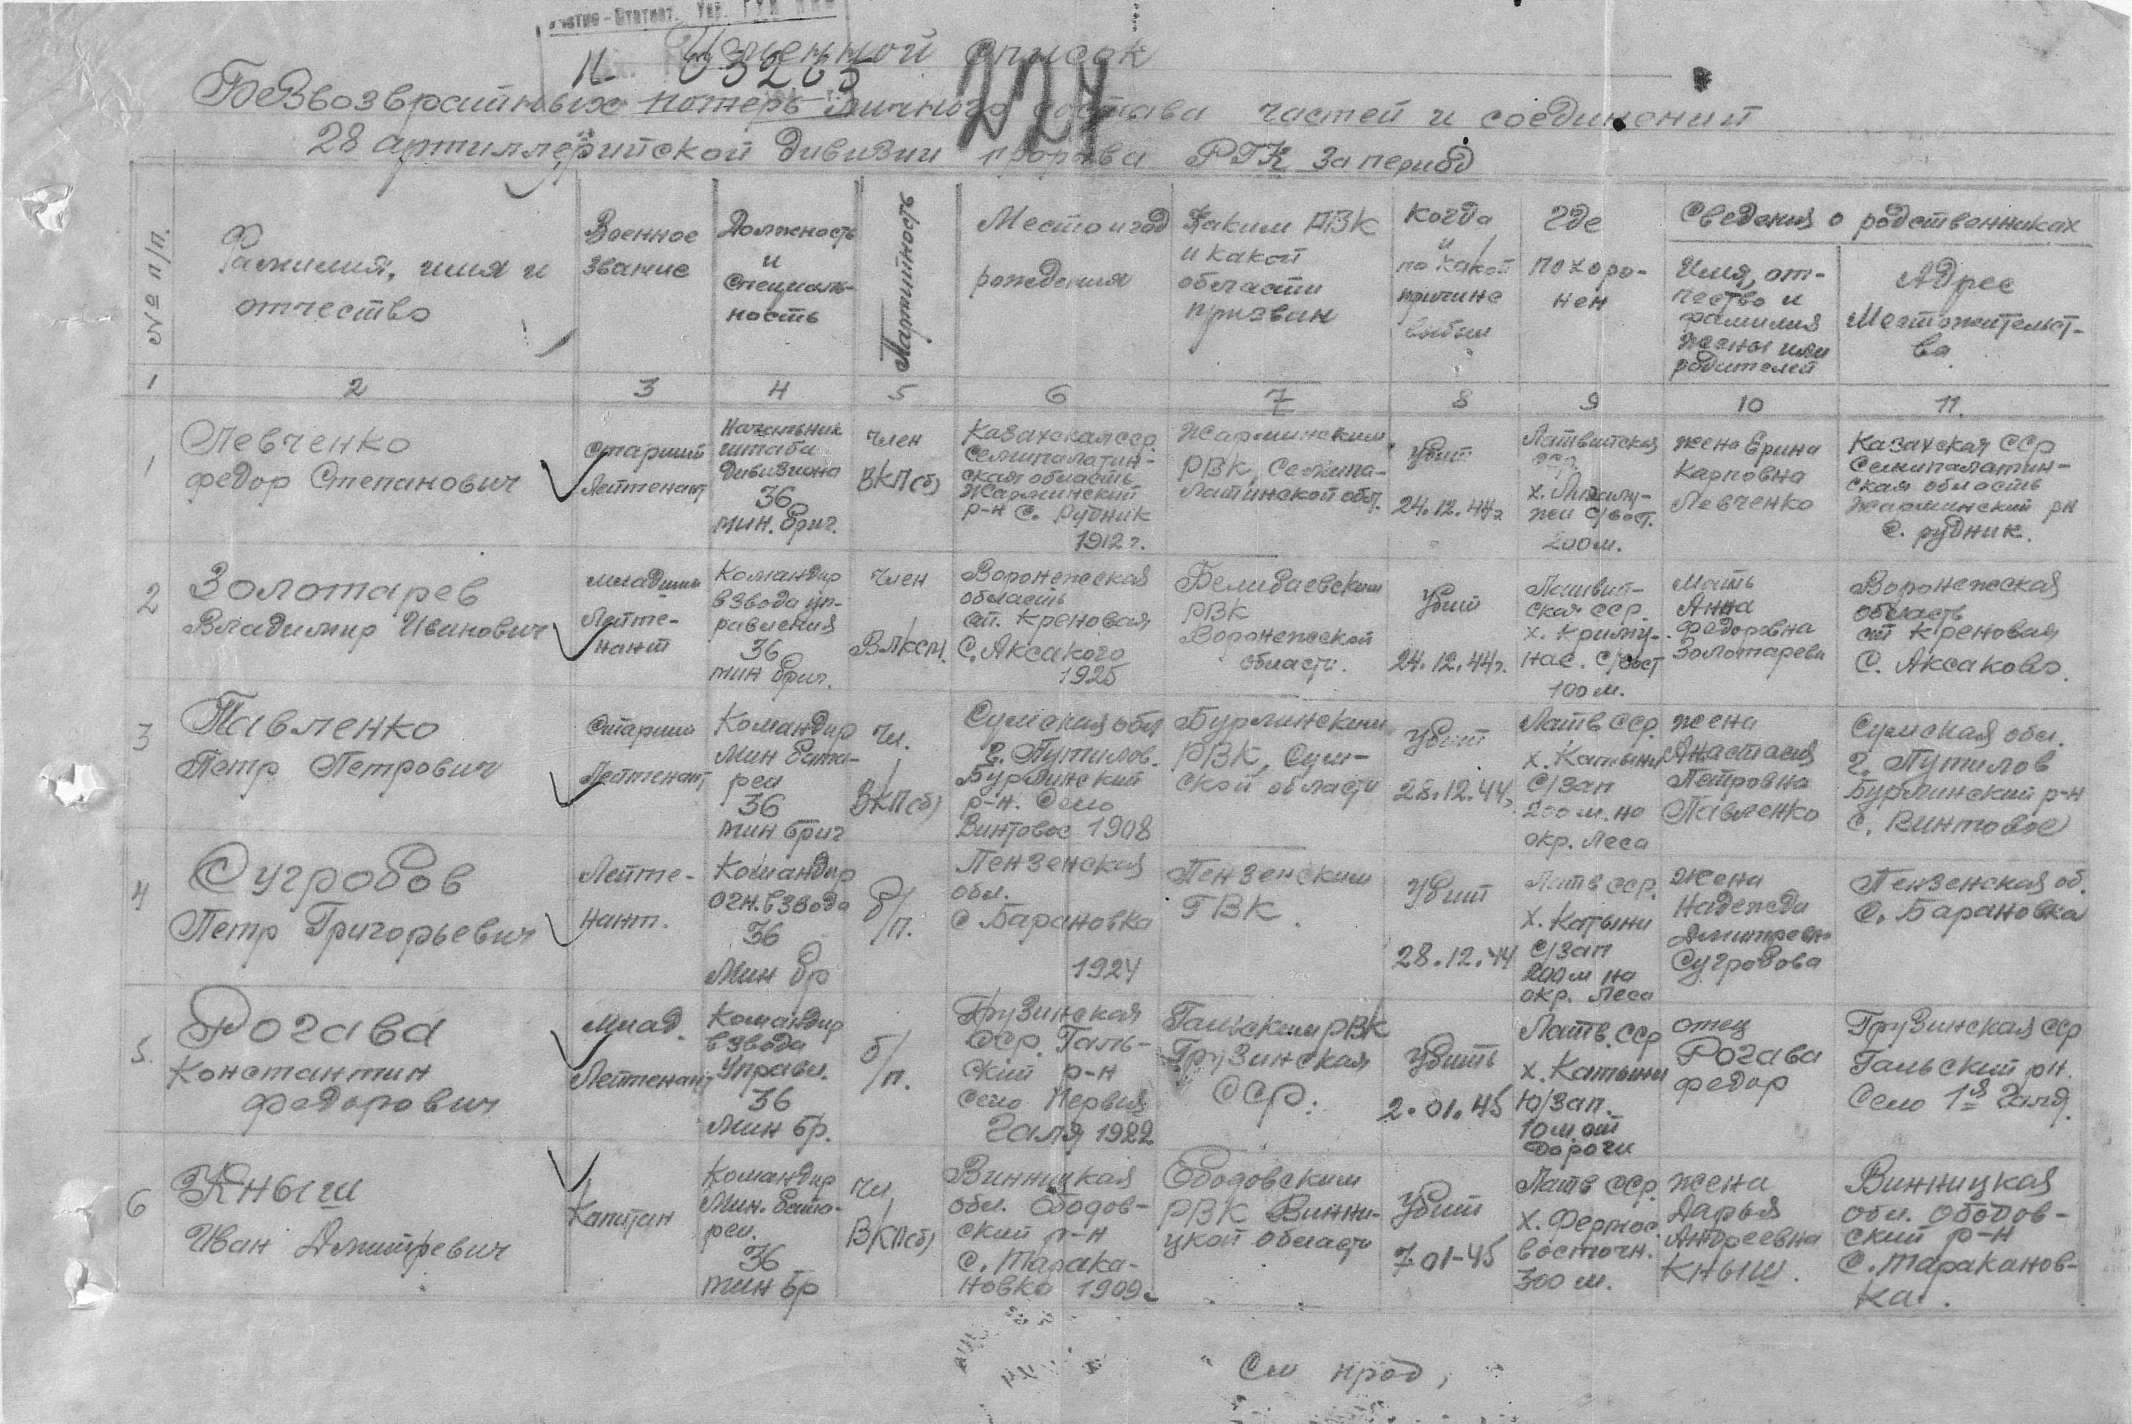 Именной список
н 03265
227
Безвозвратных потерь личного состава частей и соединений
28 артиллерийской дивизии прорыва РГК за период
№ п/п.
Фамилия, имя и
отчество
Военное
звание
Должность
и
специаль-
ность
Партийность
Место и год
рождения
Каким РВК
и какой
области
призван
Когда
и
по какой
причине
выбыл
Где
похоро-
нен
Сведения о родственниках
Имя, от-
чество и
фамилия
жены или
родителей
Адрес
Местожительст-
ва
1 2 3 4 5 6 7 8 9 10 11.
1
Левченко
Федор Степанович
Старший
Лейтенант
Начальник
штаба
дивизиона
36
мин. бриг.
член
ВКП(б)
Казахская сср
Семипалатин-
ская область
Жарминский
р-н с. Рудник
1912 г.
Жарминским
РВК, Семипа-
латинской обл.
убит
24.12.44г
Латвийская
сср
х.
с/вост.
200м.
жена Ерина
Карповна
Левченко
Казахская ССР
Семипалатин-
ская область
Жарминский рн
с. рудник.
2
Золотарев
Владимир Иванович
младший
Лейте-
нант
Командир
взвода уп-
равления
36
мин бриг.
член
ВЛКСМ.
Воронежская
область
ст. Креновая
с. Аксакого
1925
РВК
Воронежской
области.
Убит
24.12.44г.
Латвий-
ская сср.
х.
с/вост
100м.
мать
Анна
Федоровна
Золотарева
Воронежская
область
ст Креновая
с. Аксаково.
3
Павленко
Петр Петрович
Старший
Лейтенант
Командир
мин бата-
реи
36
мин бриг
чл.
ВКП(б)
Сумская обл
г. Путилов.
Бурлинский
р-н. Село
Винтовое 1908
Бурлинским
РВК, Сум-
ской области
Убит
28.12.44г
Латв сср.
х. Катыни
с/зап
200м. на
окр. леса
жена
Анастасия
Петровна
Павленко
Сумская обл.
г. Путилов
Бурлинский р-н
с. Винтовое
4
Сугробов
Петр Григорьевич
Лейте-
нант.
Командир
огн. взвода
36
Мин бр
б/п.
Пензенская
обл.
с Барановка
1924
Пензенским
ГВК.
Убит
28.12.44
Латв сср.
х. Катыни
с/зап
200м на
окр. леса
жена
Надежда
Дмитревн
Сугробова
Пензенская об.
с. Барановка
5.
Рогава
Константин
Федорович
Млад.
Лейтенант
Командир
взвода
Управл.
36
Мин бр.
б/п.
Грузинская
сср. Галь-
ский р-н
село Первая
Галя 1922
Гальским РВК
Грузинская
ССР.
Убить
2.01.45
Латв. сср
х. Катыни
Ю/Зап.
10м от
дороги
отец
Рогава
Федор
Грузинская сср
Гальский рн.
Село 1я Галя.
6
Кныш
Иван Дмитревич
Капитан
Командир
Мин. бата-
реи.
36
мин бр
чл
ВКП(б)
Винницкая
обл. Ободов-
ский р-н
с. Тарака-
новка 1909г
Ободовским
РВК Винни-
цкой области
Убит
7-01-45
Латв сср.
х. Фермос.
восточн.
300м.
жена
Дарья
Андреевна
Кныш.
Винницкая
обл. Ободов-
ский р-н
с. Тараканов-
ка.
См прод,